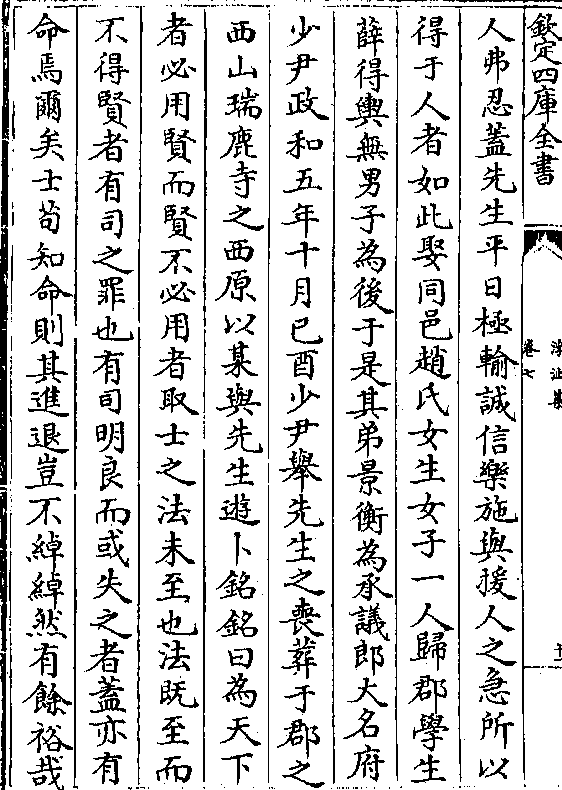 欽定四庫全書
浮沚集
卷七
人弗忍蓋先生平日極輸誠信樂施與援人之急所以
得于人者如此娶同邑趙氏女生女子一人歸郡學生
薛得輿無男子為後于是其弟景衡為承議郎大名府
少尹政和五年十月已酉少尹舉先生之喪葬于郡之
西山瑞鹿寺之西原以某與先生遊卜銘銘曰為天下
者必用賢而賢不必用者取士之法未至也法既至而
不得賢者有司之罪也有司明良而或失之者蓋亦有
命焉爾矣士苟知命則其進退豈不綽綽然有餘裕哉